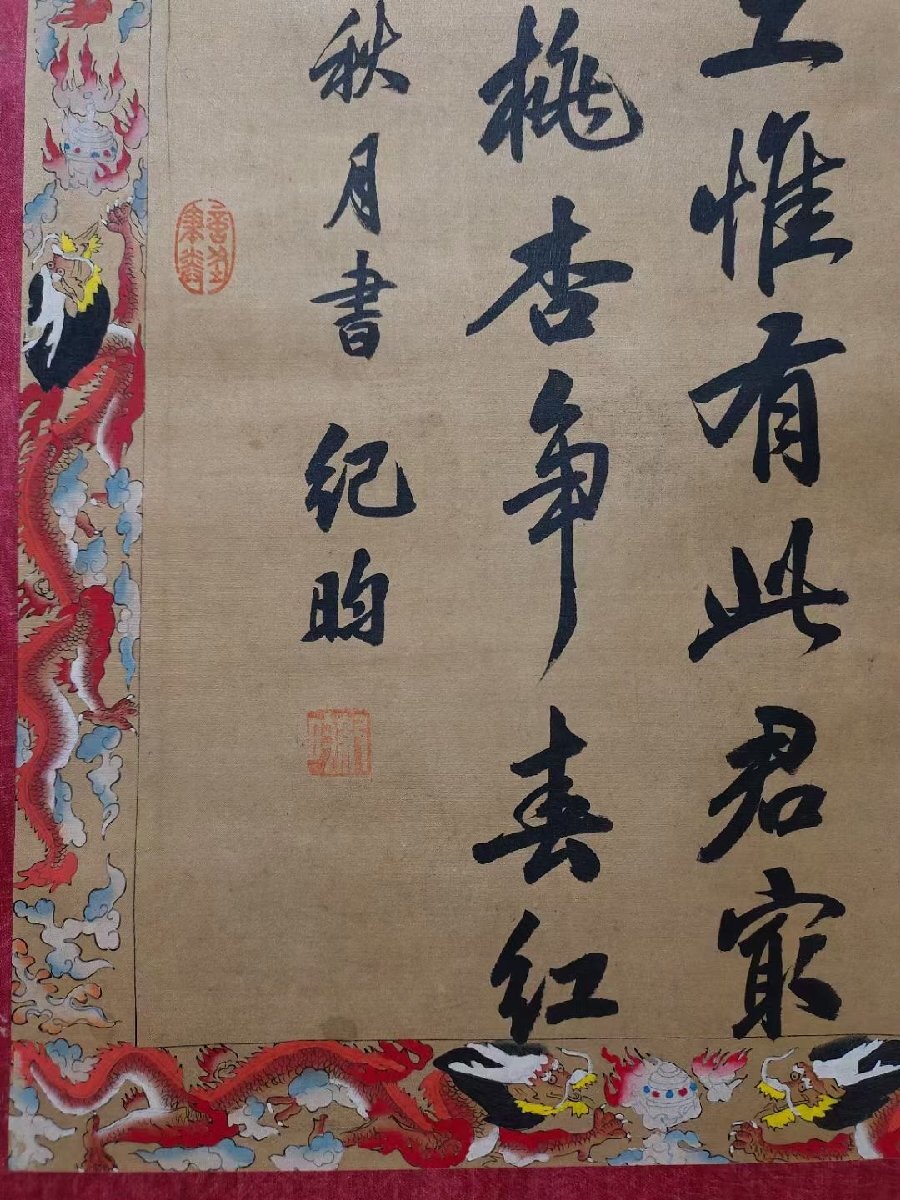 惟有此君㝡
桃杏争春红
秋月書 纪昀